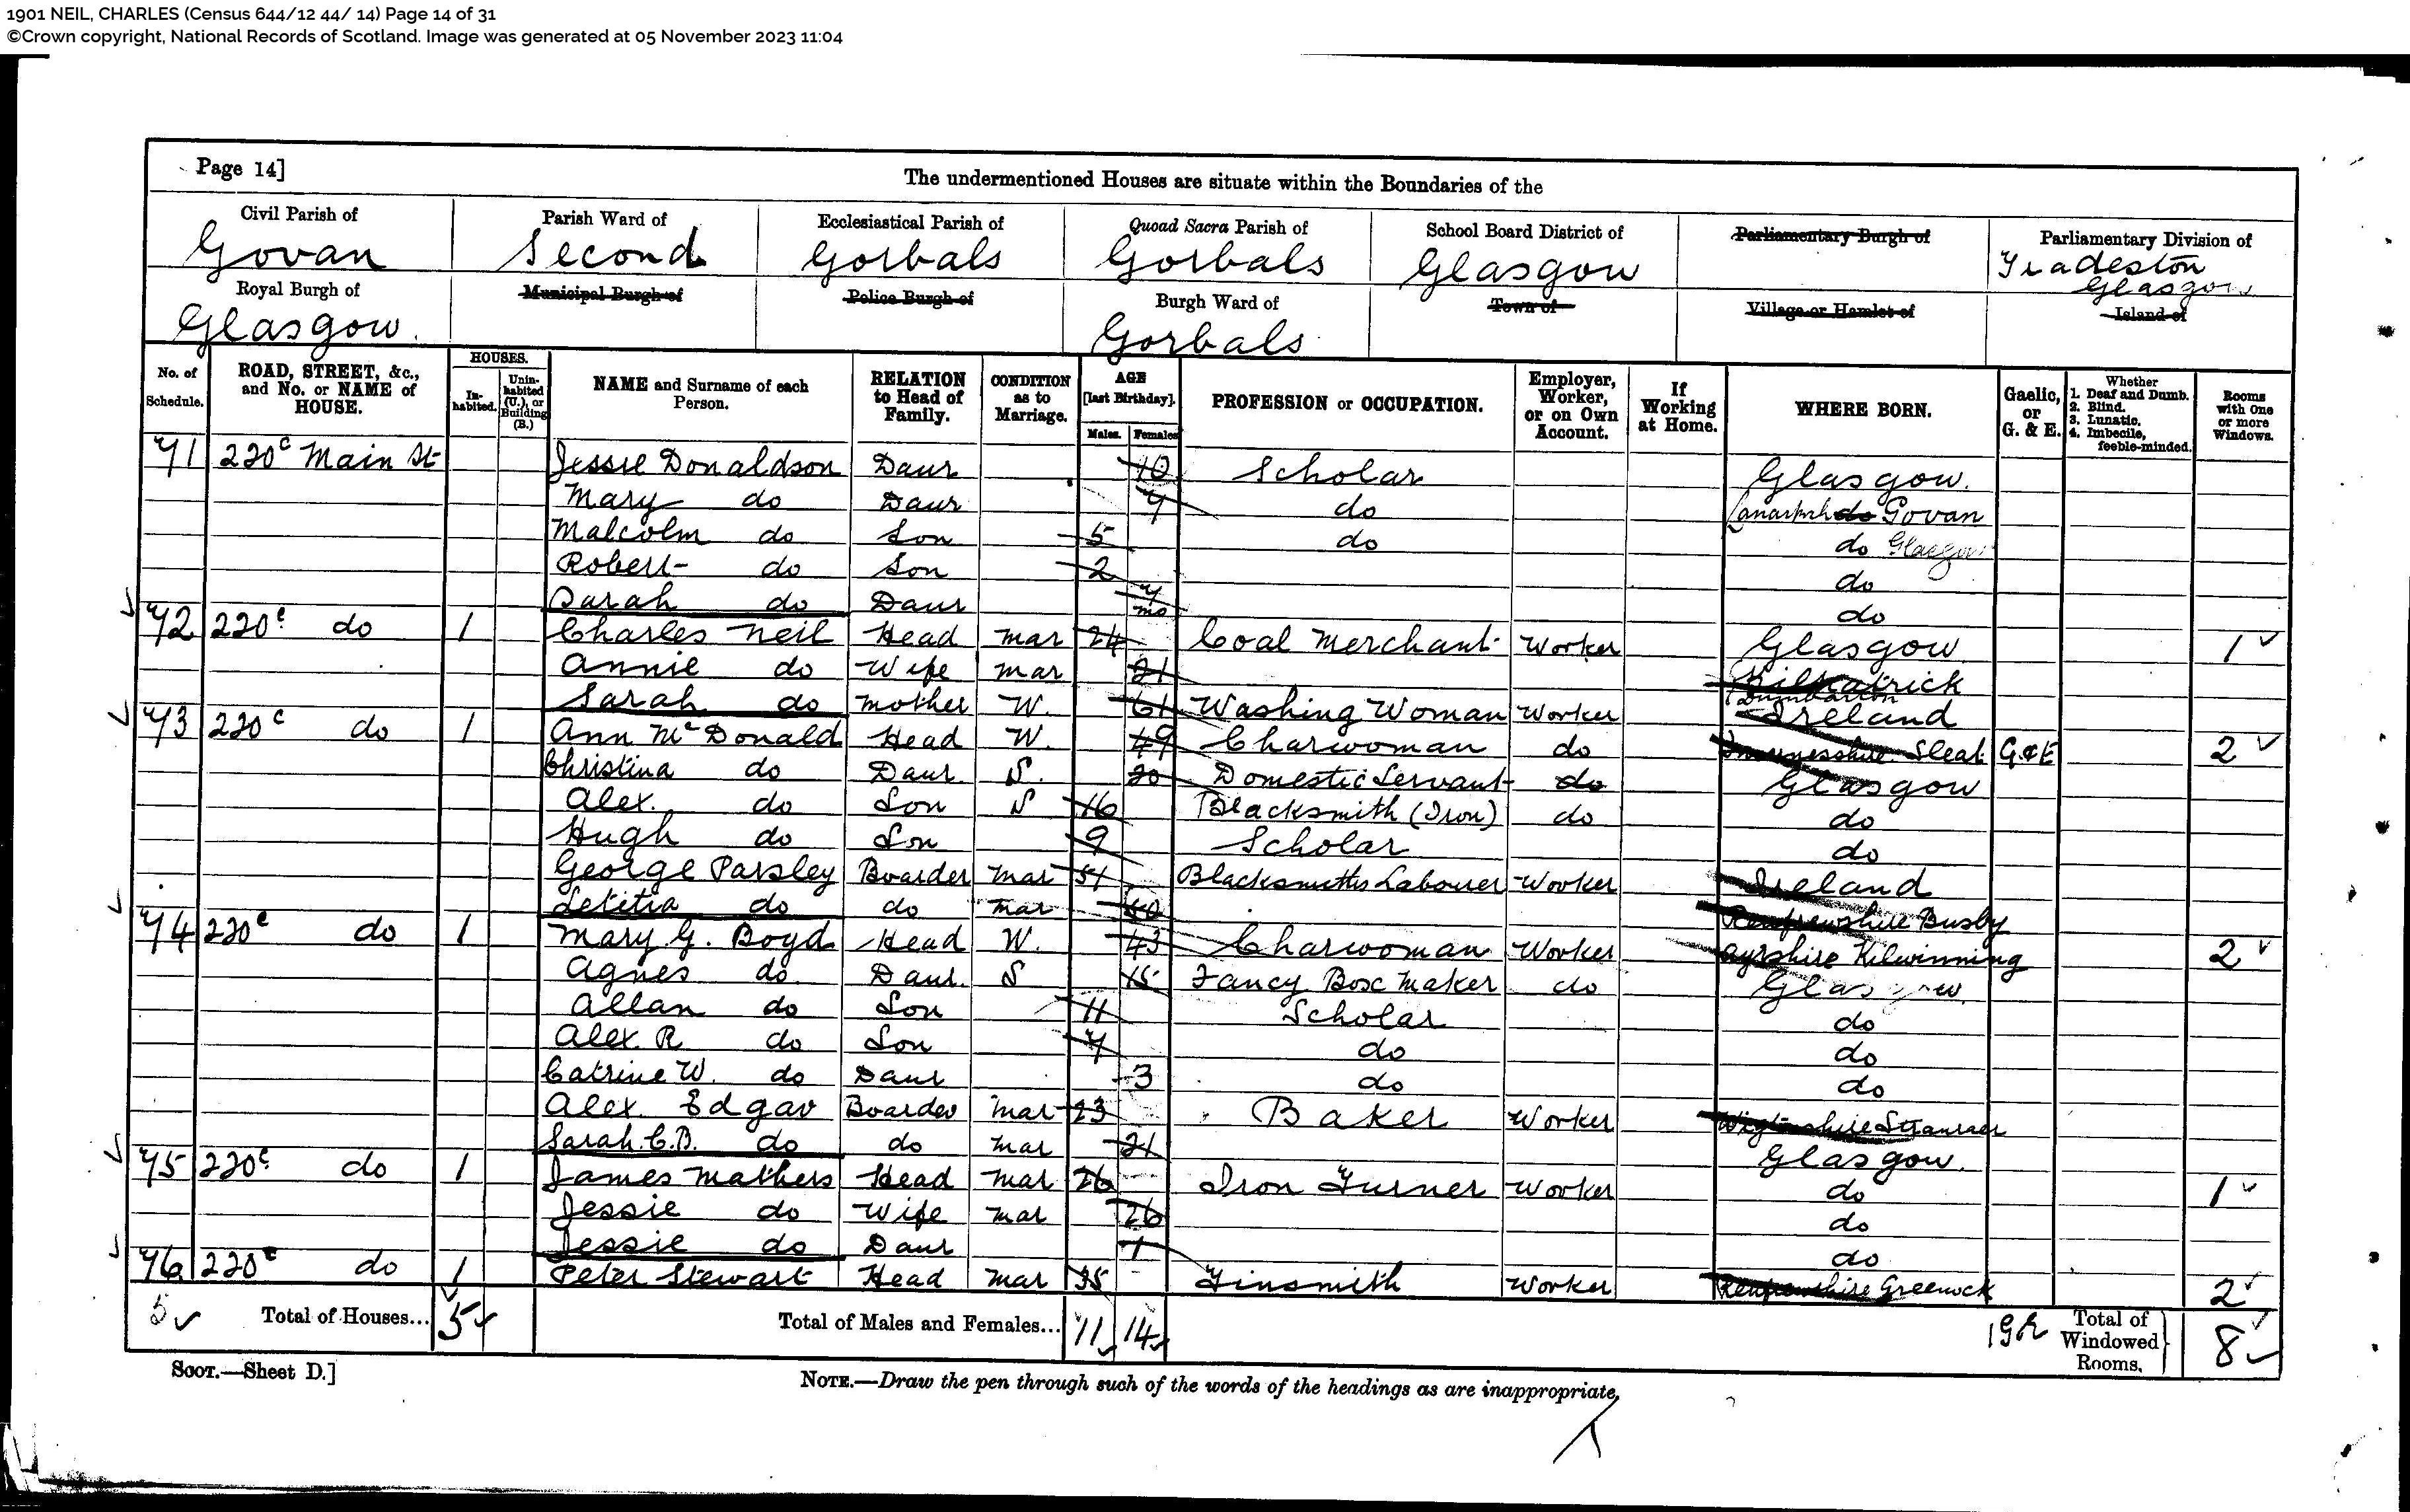 1901 NEIL, CHARLES (Census 644/12 44/ 14) Page 14 of 31
©Crown copyright, National Records of Scotland. Image was generated at 05 November 2023 11:04
Page 14]
The undermentioned Houses are situate within the Boundaries of the
Civil Parish of Govan
Parish Ward of Second
Ecclesiastical Parish of Gorbals
Quoad Sacra Parish of Gorbals
School Board District of Glasgow
Parliamentary Burgh of
Parliamentary Division of Tradeston Glasgow
Royal Burgh of Glasgow.
Municipal Burgh of
Police Burgh of
Burgh Ward of Gorbals
Town of
Village or Hamlet of
Island of
No. of Schedule.
ROAD, STREET, &c., and No. or NAME of HOUSE.
HOUSES.
Inhabited.
Uninhabited (U.), or Building (B.)
NAME and Surname of each Person.
RELATION to Head of Family.
CONDITION as to Marriage.
AGE [last Birthday].
Males. Females
PROFESSION or OCCUPATION.
Employer, Worker, or on Own Account.
If Working at Home.
WHERE BORN.
Gaelic, or G. & E.
Whether 1. Deaf and Dumb. 2. Blind. 3. Lunatic. 4. Imbecile, feeble-minded.
Rooms with One or more Windows.
71 220c Main St Jessie Donaldson Daur 10 Scholar Glasgow.
Mary do Daur 7 do do Govan
Malcolm do Son 5 do do Glasgow
Robert do Son 2 do
Sarah do Daur 7 mo do
72 220c do 1 Charles Neil Head Mar 24 Coal Merchant Worker Glasgow 1
Annie do Wife Mar 21 Kilpatrick Dumbarton
Sarah do Mother W. 61 Washing Woman Worker Ireland
73 220c do 1 Ann McDonald Head W. 49 Charwoman do Invernesshire Sleat G&E 2
Christina do Daur S. 20 Domestic Servant do Glasgow
Alex. do Son S 16 Blacksmith (Iron) do do
Hugh do Son 9 Scholar do
George Parsley Boarder Mar 51 Blacksmiths Labourer Worker Ireland
Letitia do do Mar 50 Renfrewshire Busby
74 220c do 1 Mary G. Boyd Head W. 43 Charwoman Worker Ayrshire Kilwinning 2
Agnes do Daur. S 15 Fancy Box Maker do Glasgow.
Allan do Son 11 Scholar do
Alex. R do Son 7 do do
Catrine W. do Daur 3 do do
Alex. Edgar Boarder Mar 23 Baker Worker Wigtonshire Stranraer
Sarah. C.B. do do Mar 21 Glasgow.
75 220c do 1 James Mathers Head Mar 26 Iron Turner Worker do 1
Jessie do Wife Mar 26 do
Jessie do Daur 1 do
76 220c do 1 Peter Stewart Head Mar 35 Tinsmith Worker Renfrewshire Greenock 2
5 Total of Houses... 5 Total of Males and Females... 11 14 Total of Windowed Rooms. 8
SCOT.—Sheet D.]
NOTE.—Draw the pen through such of the words of the headings as are inappropriate.